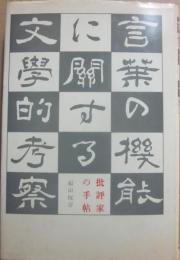 言葉の機能
に關する
文學的考察
批評家
の手帖
福田恆存